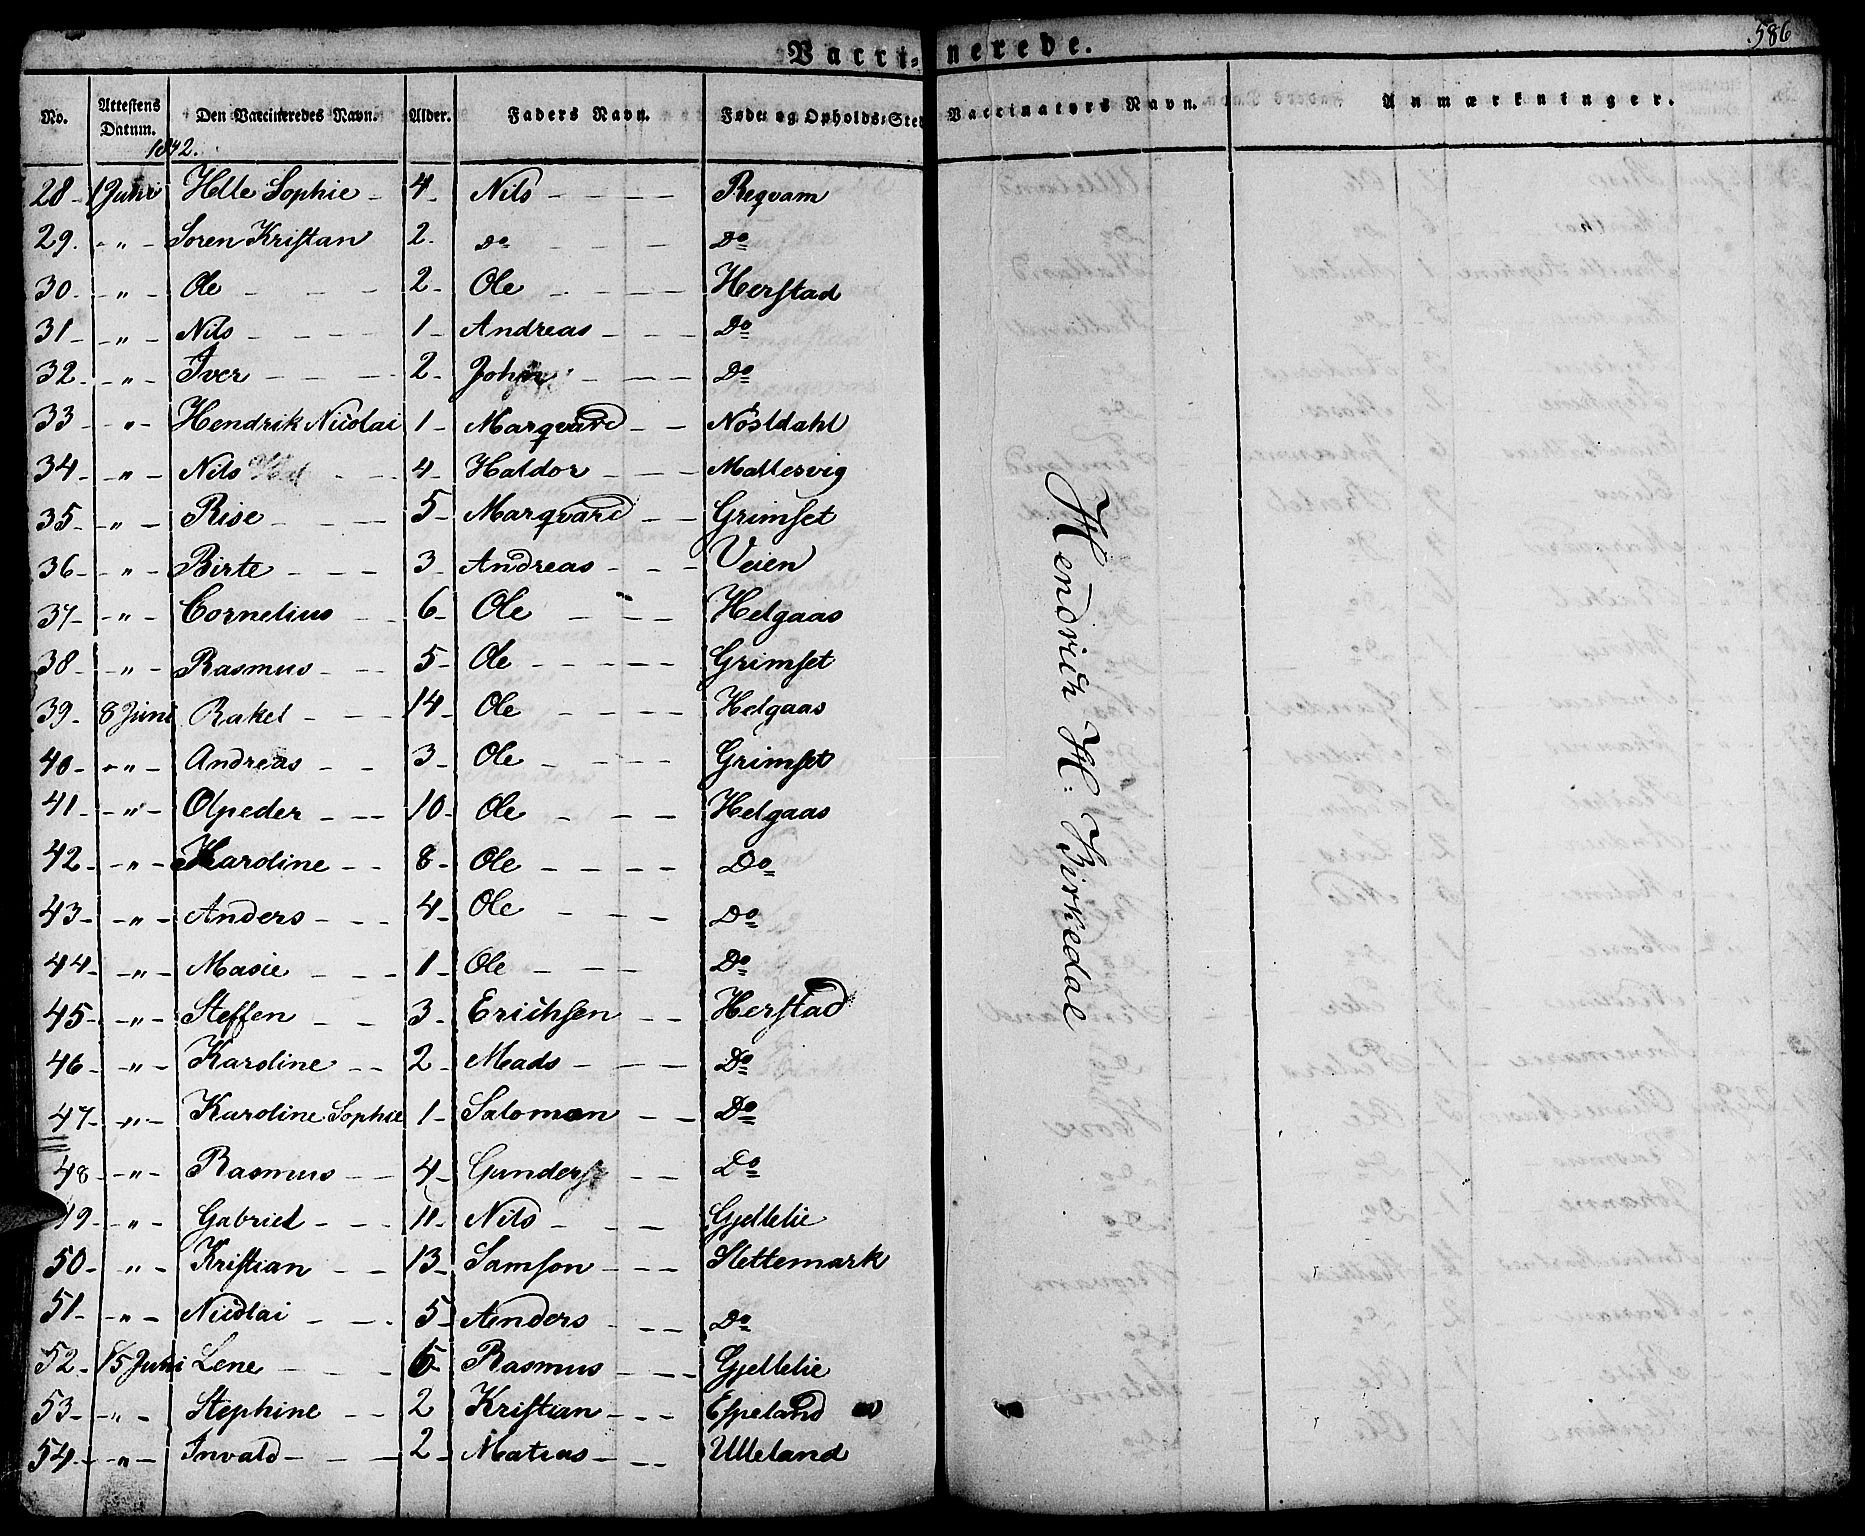 586
Vacci=nerede.
No. Attestens Datum. Den Vaccineredes Navn. Alder. Faders Navn. Føde= og Opholds=Sted Vaccinators Navn. Anmærkninger.
1842.
28 - 1 Juni Helle Sophie - 4 - Nils - - - - Reqvam
29. - " - Soren Kristan 2. Do - - - Do
30 - " - Ole - - - 2 - Ole - - - - Herstad
31 - " - Nils - - - 1 - Andreas - - - Do
32 - " - Iver - - - 2 - John - - - Do
33 - " - Hendrik Nicolai 1 - Marqvard - - Nôsldahl
34 - " - Nils - - 4 - Haldor - - - Mallervig
35 - " - Rise - - - 5 - Marqvard - - Grimset
36 - " - Birte - - - 3 - Andreas - - - Veien
37 - " - Cornelius - - 6 - Ole - - - Helgaas
38 - " - Rasmus - - - 5 - Ole - - - - Grimset
39 - 8 Juni Rakel - - - 14 - Ole - - - - Helgaas
40 - " - Andreas - - 3 - Ole - - - - Grimset
41 - " - Olpeder - - - 10 - Ole - - - Helgaas
42 - " - Karoline - - 8 - Ole - - - - Do
43 - " - Anders - - - 4 - Ole - - - Do
44 - " - Masie - - - 1 - Ole - - - Do
45 - " - Steffen - - 3 - Erichsen - - Herstad
46 - " - Karoline - - 2 - Mads - - - Do
47 - " - Karoline Sophie 1 - Salomon - - Do
48 - " - Rasmus - - 4 - Gunder - - Do
49 - " - Gabriel - - - 11 - Nils - - - Gjellelie
50 - " - Kristian - - 13 - Samson - - - Slettemark
51 - " - Nicolai - - 5 - Anders - - - Do
52 - 15 Juni Lene - - - Rasmus - - - Gjellelie
53 - " - Stephine - - 2 Kristian - - - Espeland
54 - " - Invald - - - 2 - Matias - - - Ulleland
Hendrich H: Birkedal